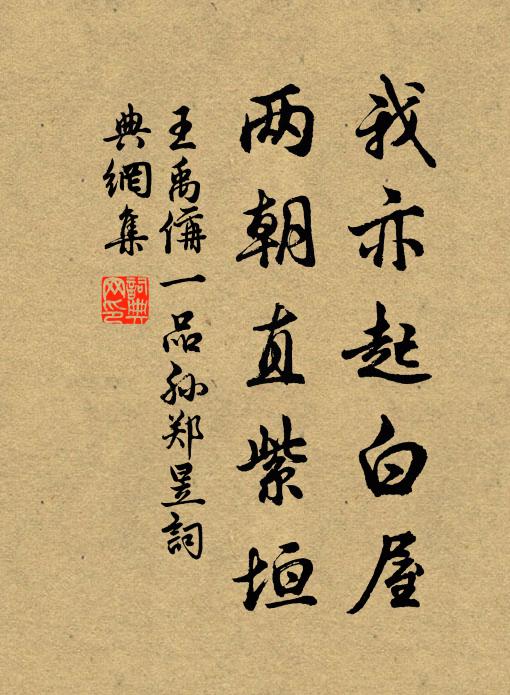 我亦起白屋
两朝直紫垣
王禹偁一品孙郑昱詞
典網集
詞典网印